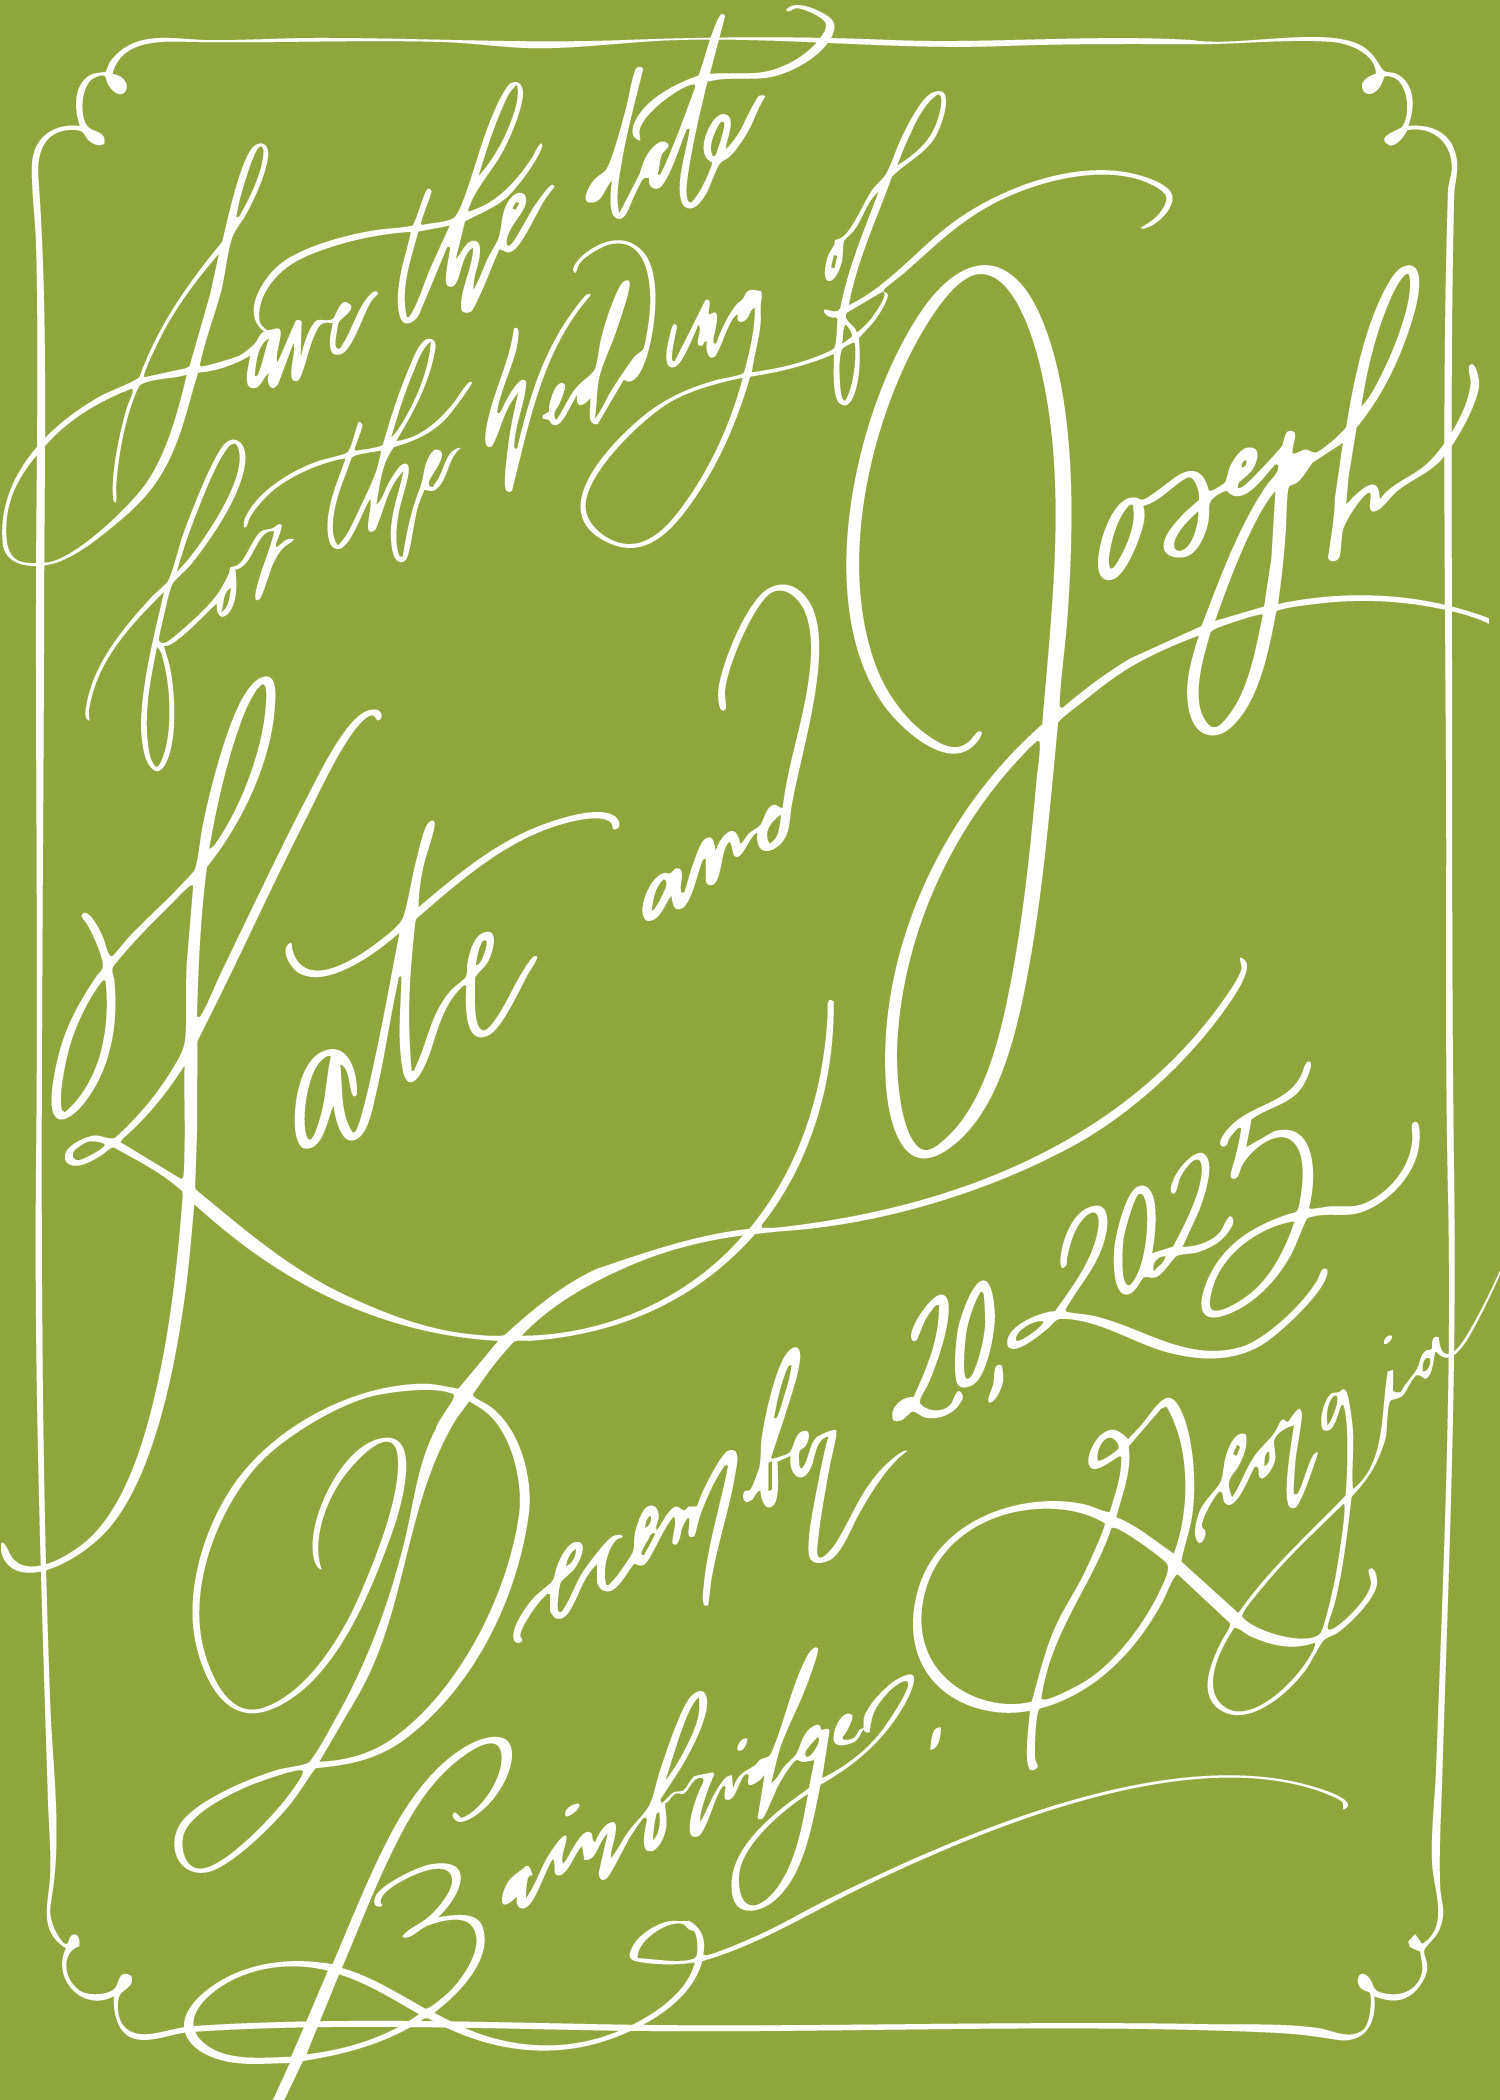 Save the date
for the wedding of
Kate and Joseph
December 20, 2025
Bainbridge, Georgia